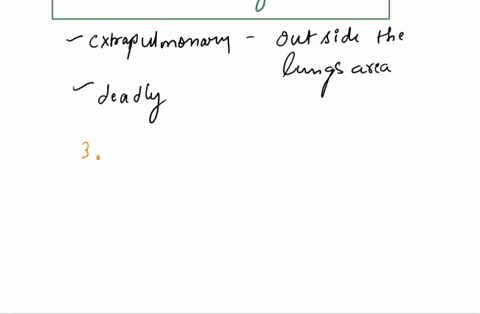 extrapulmonary - outside the
lungs area
deadly
3.